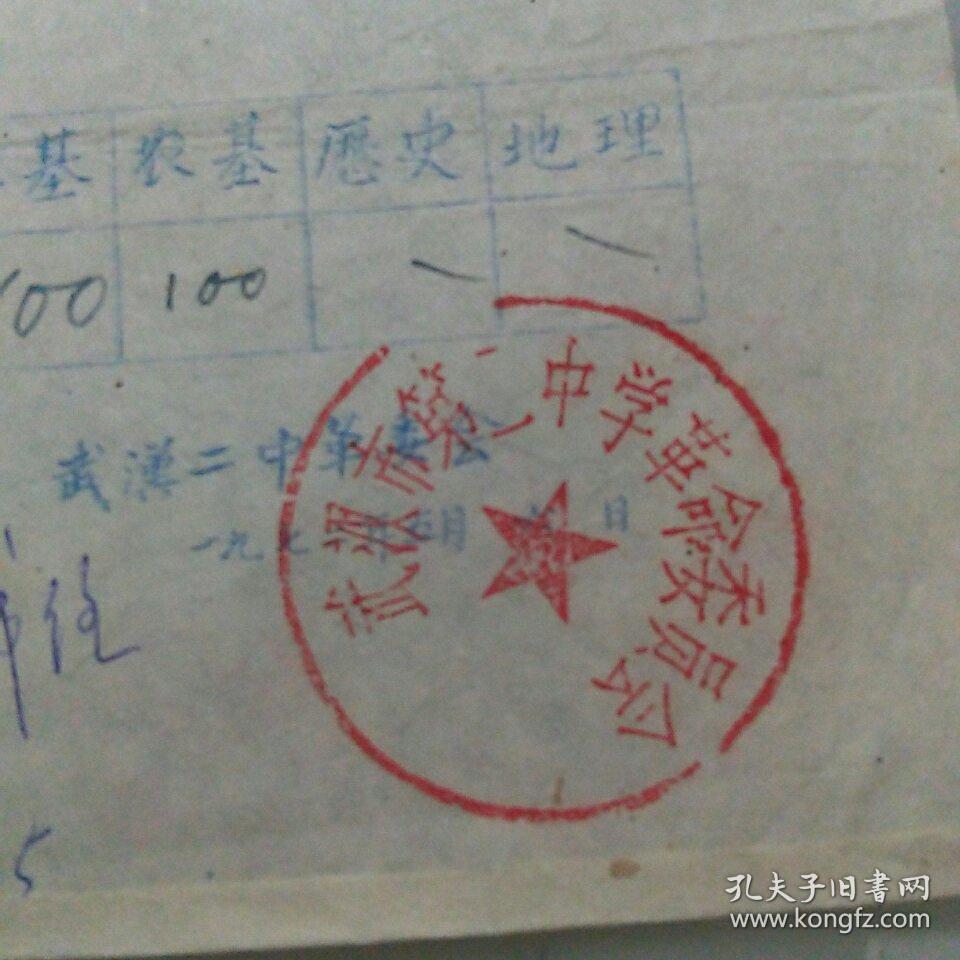 基 农基 歷史 地理
100 100 一 一
武漢二中革委会
一九七 年 月 日
武汉市第二中学革命委员会
5
孔夫子旧書网
www.kongfz.com